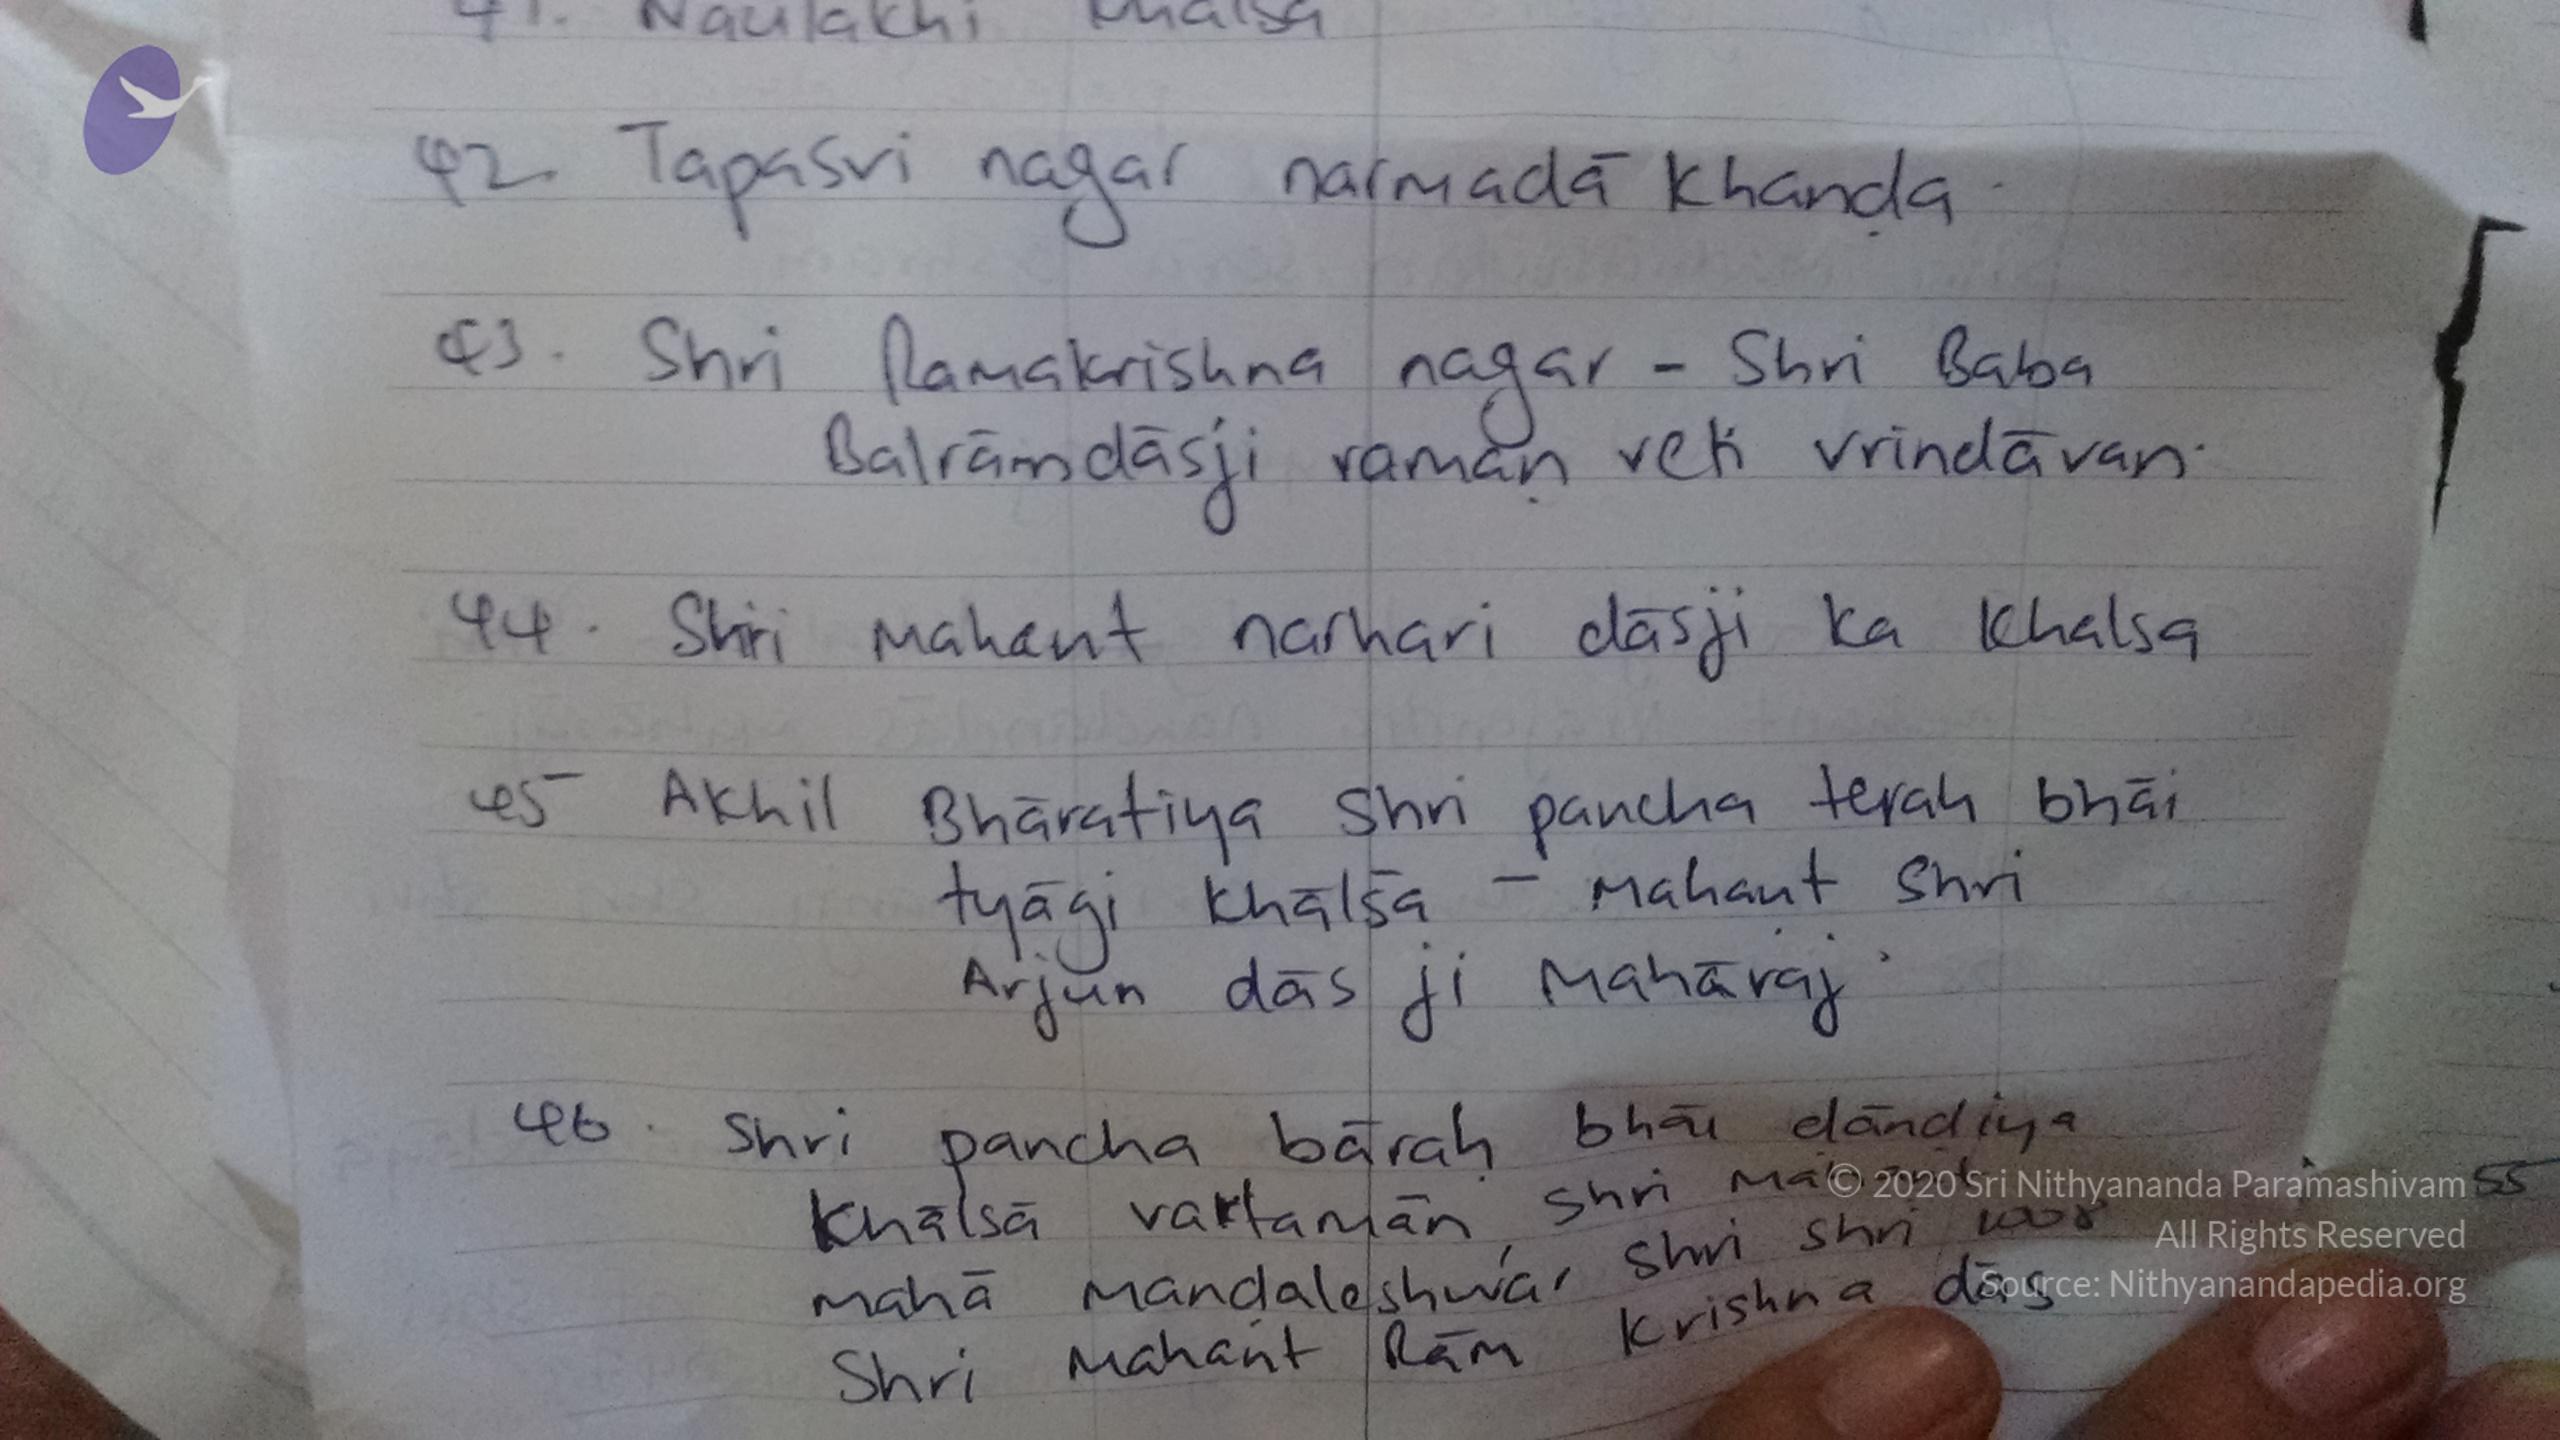 41. Naulakhi Khalsa
42. Tapasvi nagar narmadā Khanḍa.
43. Shri Ramakrishna nagar - Shri Baba
Balrāmdāsji ramaṇ reti vrindāvan.
44. Shri Mahant narhari dāsji ka Khalsa
45 Akhil Bhāratiya Shri pancha terah bhāi
tyāgi Khālsā - Mahant Shri
Arjun dās ji Mahāraj.
46. Shri pancha bāraḥ bhāi dāndiya
Khālsā vartamān, Shri Mahant
mahā manḍaleshwar Shri Shri 1008
Shri Mahant Rām Krishna dās
55
© 2020 Sri Nithyananda Paramashivam
All Rights Reserved
Source: Nithyanandapedia.org